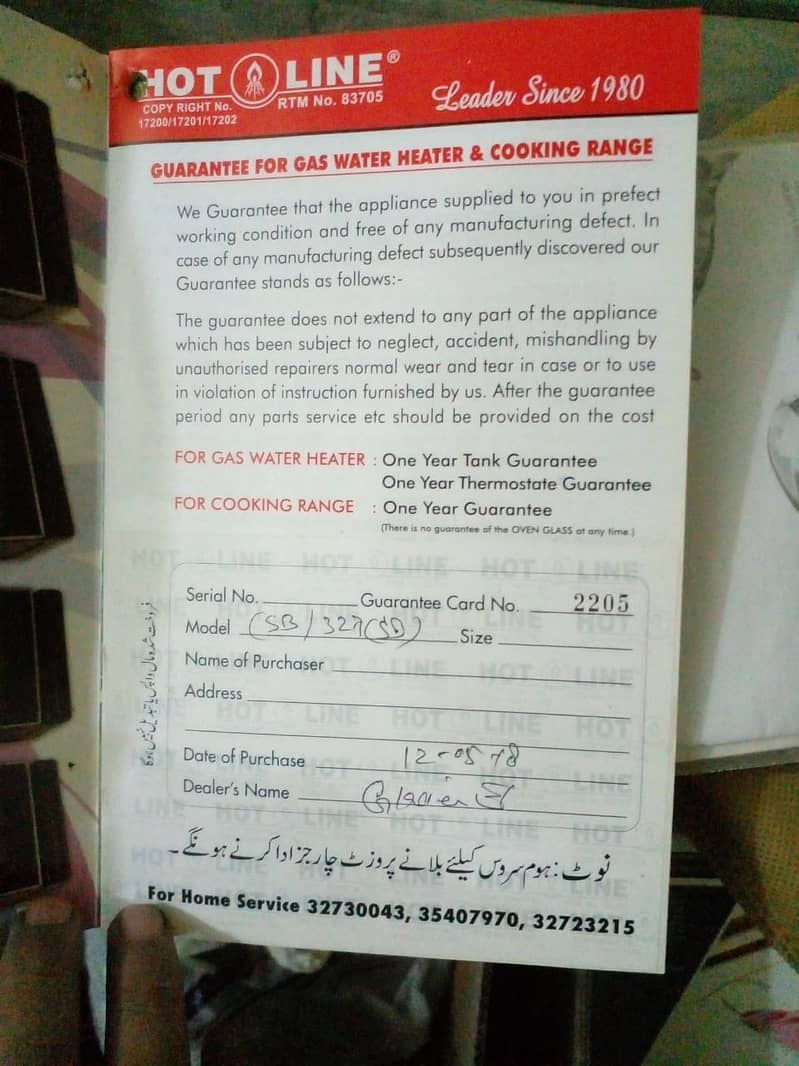 HOT LINE®
COPY RIGHT No.
17200/17201/17202
RTM No. 83705
Leader Since 1980
GUARANTEE FOR GAS WATER HEATER & COOKING RANGE
We Guarantee that the appliance supplied to you in prefect
working condition and free of any manufacturing defect. In
case of any manufacturing defect subsequently discovered our
Guarantee stands as follows:-
The guarantee does not extend to any part of the appliance
which has been subject to neglect, accident, mishandling by
unauthorised repairers normal wear and tear in case or to use
in violation of instruction furnished by us. After the guarantee
period any parts service etc should be provided on the cost
FOR GAS WATER HEATER : One Year Tank Guarantee
One Year Thermostate Guarantee
FOR COOKING RANGE : One Year Guarantee
(There is no guarantee of the OVEN GLASS at any time.)
Serial No. Guarantee Card No. 2205
Model (SB/327(SD) Size
Name of Purchaser
Address
Date of Purchase 12-05-18
Dealer's Name
فروخت شدہ مال واپس یا تبدیل نہیں ہوگا
نوٹ: ہوم سروس کیلئے بلانے پر وزٹ چارجز ادا کرنے ہونگے۔
For Home Service 32730043, 35407970, 32723215